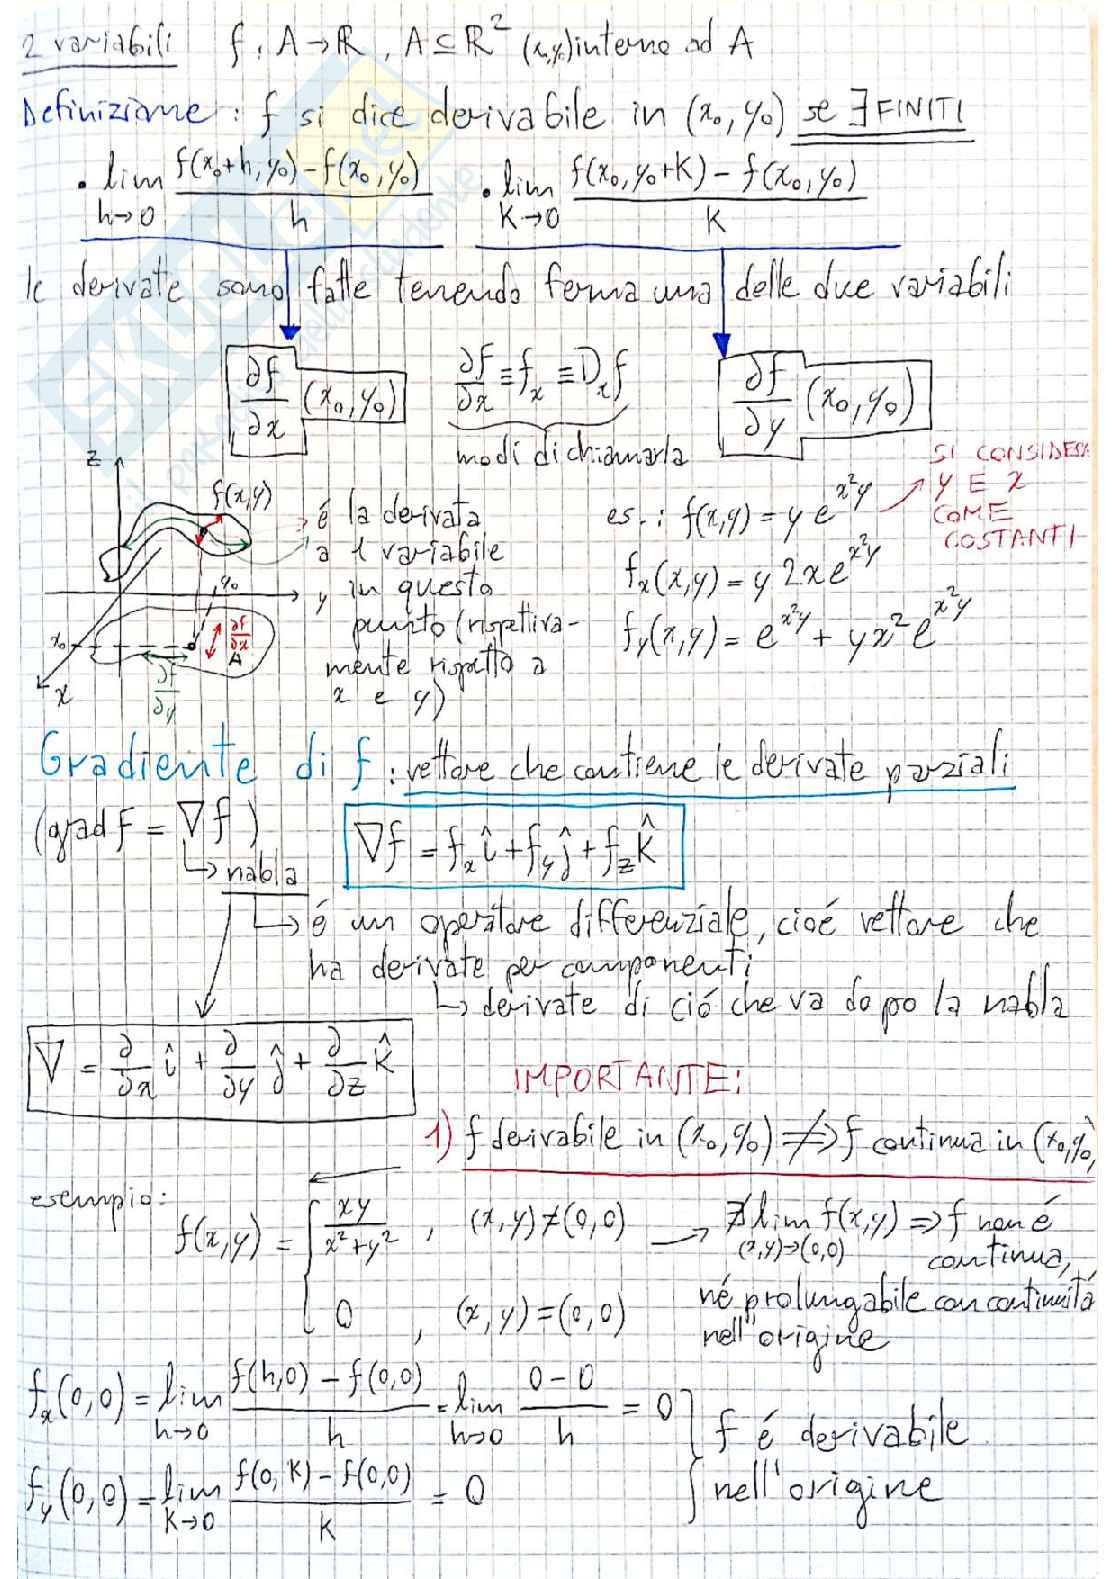 2 variabili f: A→ℝ, A⊆ℝ² (x,y) interno ad A
Definizione: f si dice derivabile in (x₀,y₀) se ∃ FINITI
• lim h→0 (f(x₀+h,y₀)-f(x₀,y₀))/h • lim K→0 (f(x₀,y₀+K)-f(x₀,y₀))/K
le derivate sono fatte tenendo ferma una delle due variabili
∂f/∂x (x₀,y₀) ∂f/∂x ≡ fₓ ≡ Dₓf ∂f/∂y (x₀,y₀)
modi di chiamarla
z
f(x,y)
y₀
y
x₀
x
∂f/∂x
A
∂f/∂y
→ é la derivata
a 1 variabile
in questo
punto (rispettiva-
mente rispetto a
x e y)
SI CONSIDERA
Y E X
COME
COSTANTI
es.: f(x,y) = y e^(x²y)
fₓ(x,y) = y 2x e^(x²y)
f_y(x,y) = e^(x²y) + yx² e^(x²y)
Gradiente di f: vettore che contiene le derivate parziali
(grad f = ∇f) ∇f = fₓ î + f_y ĵ + f_z K̂
↳ nabla
↳ é un operatore differenziale, cioé vettore che
ha derivate per componenti
↳ derivate di ció che va dopo la nabla
∇ = ∂/∂x î + ∂/∂y ĵ + ∂/∂z K̂
IMPORTANTE:
1) f derivabile in (x₀,y₀) ⇏ f continua in (x₀,y₀)
esempio:
f(x,y) = { xy/(x²+y²), (x,y)≠(0,0) → ∄ lim (x,y)→(0,0) f(x,y) ⇒ f non é
continua,
0, (x,y)=(0,0) né prolungabile con continuitá
nell'origine
fₓ(0,0) = lim h→0 (f(h,0)-f(0,0))/h = lim h→0 (0-0)/h = 0
f_y(0,0) = lim K→0 (f(0,K)-f(0,0))/K = 0
f é derivabile
nell'origine